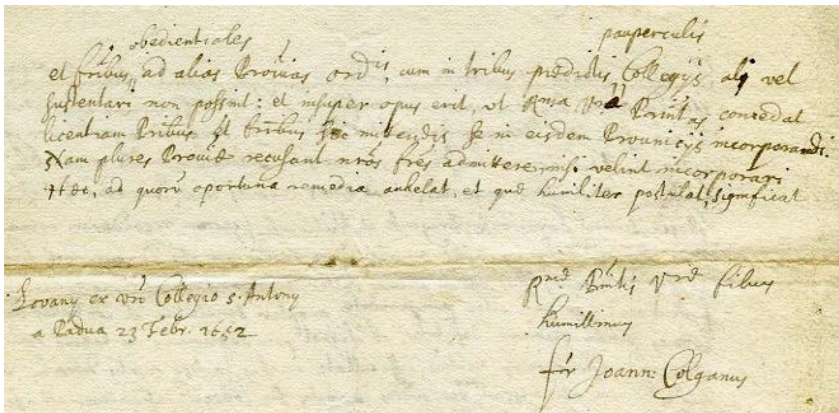 obedientiales pauperculis
et frībus ad alias Proviās ordis, cum in tribus prędictis Collegijs ali vel
sustentari non possint: et insuper opus erit, ut Rma Vrā Prntās concedat
licentiam Pribus et frībus sic mittendis se in eisdem Provincijs incorporandi.
Nam plures Provię recusant nrōs frēs admittere, nisi velint incorporari
Hęc, ad quorū oportuna remedia anhelat, et quę humiliter postulat, significat
Lovany ex vrō Collegio S. Antony
a Padua 23 Febr. 1652
Rmę Prntis Vrę filius
humillimus
fr Joann: Colganus